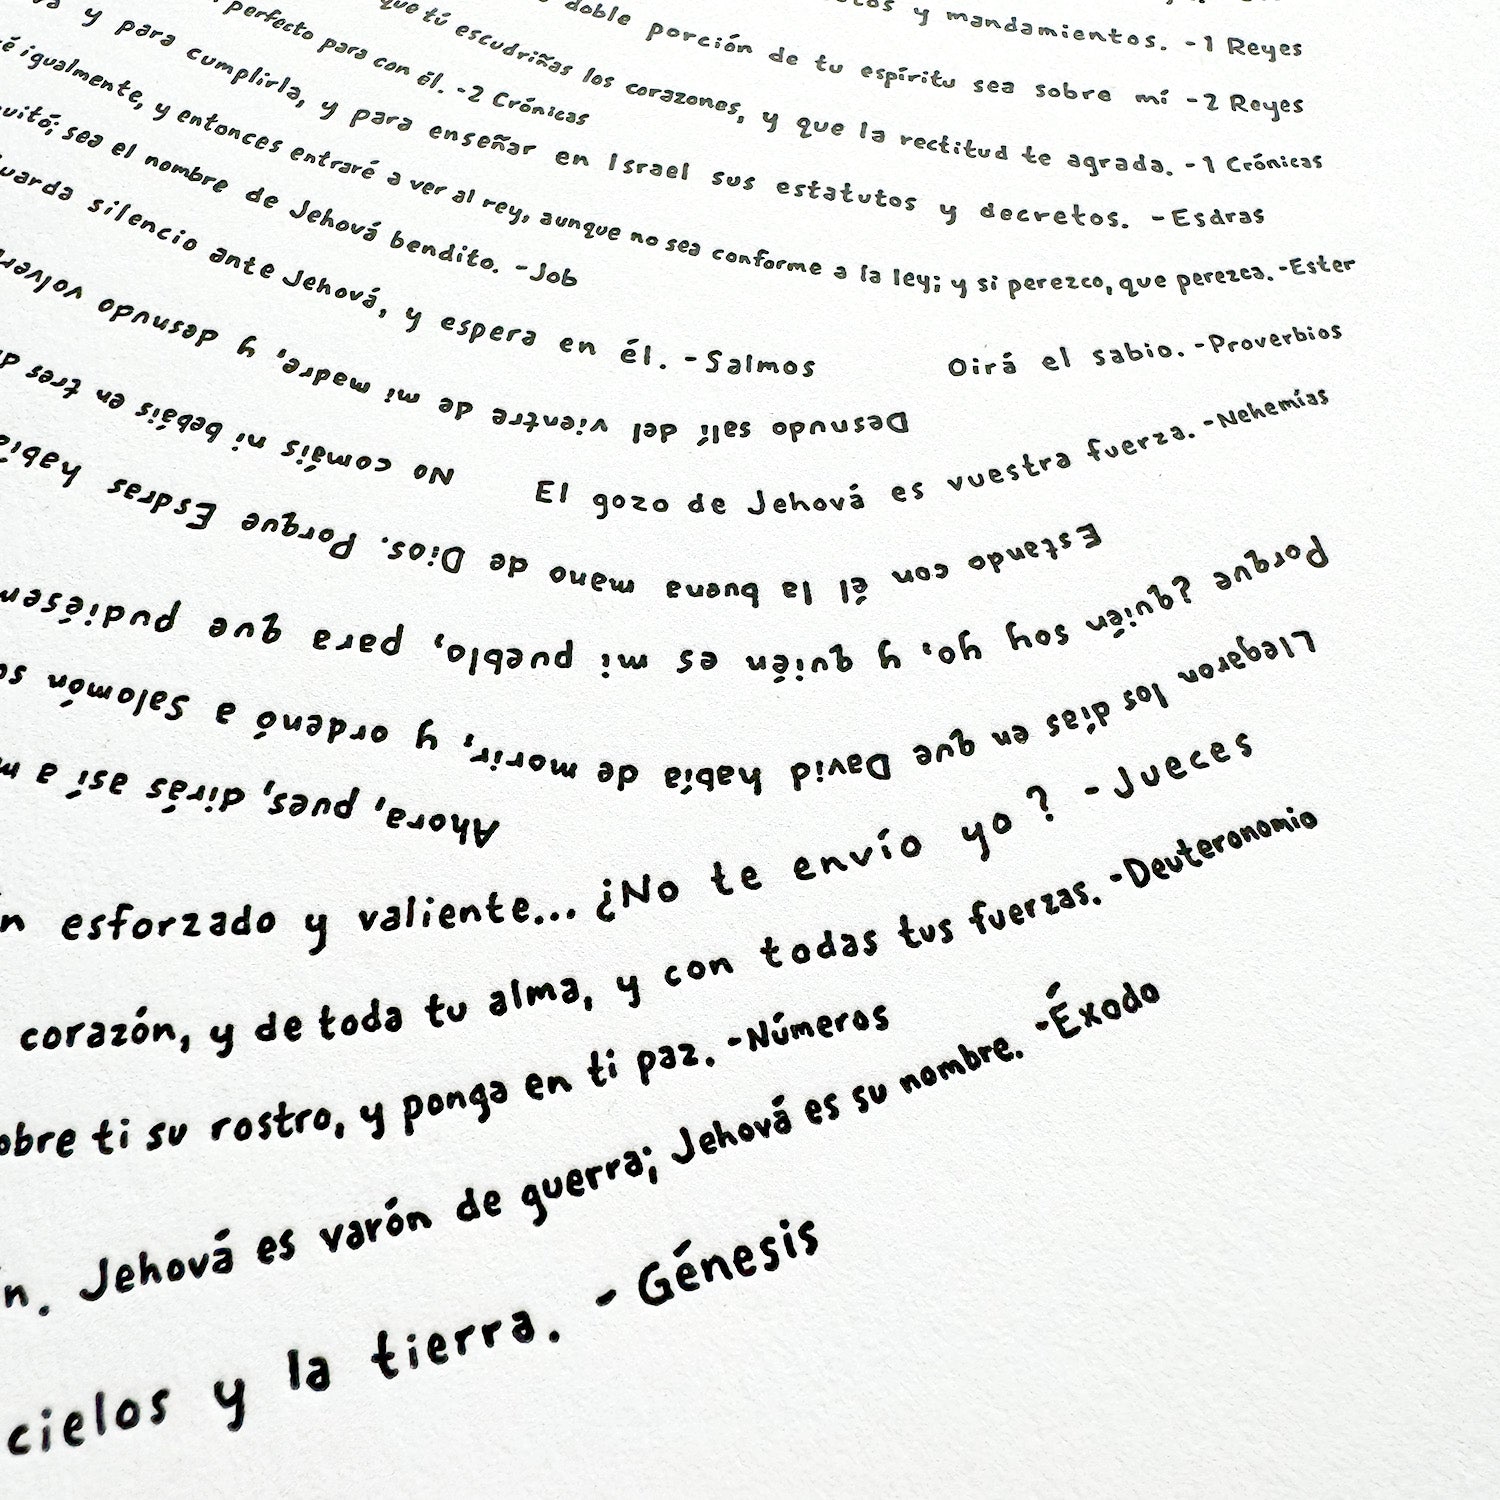 y mandamientos. -1 Reyes
doble porción de tu espíritu sea sobre mí -2 Reyes
que tú escudriñas los corazones, y que la rectitud te agrada. -1 Crónicas
perfecto para con él. -2 Crónicas
y para cumplirla, y para enseñar en Israel sus estatutos y decretos. -Esdras
igualmente, y entonces entraré a ver al rey, aunque no sea conforme a la ley; y si perezco, que perezca. -Ester
sea el nombre de Jehová bendito. -Job
silencio ante Jehová, y espera en él. -Salmos
Oirá el sabio. -Proverbios
Desnudo salí del vientre de mi madre, y desnudo
No comáis ni bebáis en tres
El gozo de Jehová es vuestra fuerza. -Nehemías
Estando con él la buena mano de Dios. Porque Esdras
Porque ¿quién soy yo, y quién es mi pueblo, para que pudiésem
Llegaron los días en que David había de morir, y ordenó a Salomón
Ahora, pues, dirás así a m
esforzado y valiente... ¿No te envío yo? -Jueces
corazón, y de toda tu alma, y con todas tus fuerzas. -Deuteronomio
obre ti su rostro, y ponga en ti paz. -Números
n. Jehová es varón de guerra; Jehová es su nombre. -Éxodo
cielos y la tierra. - Génesis